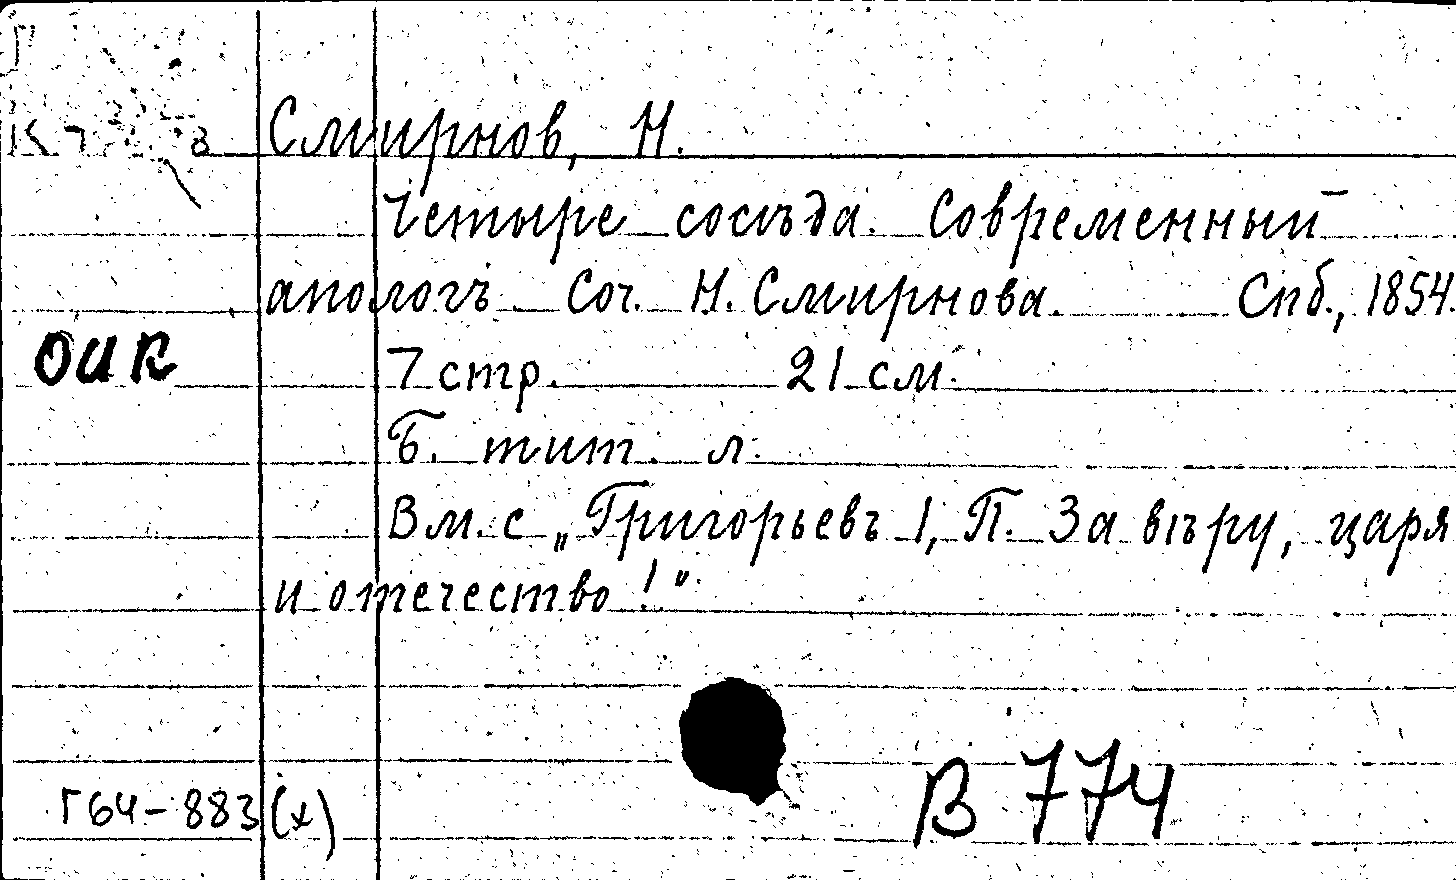 Смирнов, Н.
Четыре сосѣда. Современный
апологъ. Соч. Н. Смирнова. Спб., 1854.
ОИК
7 стр. 21 см.
Б. тит. л.
Вм. с „Григорьевъ 1, П. За вѣру, царя
и отечество!"
Г64-883(х)
В 774